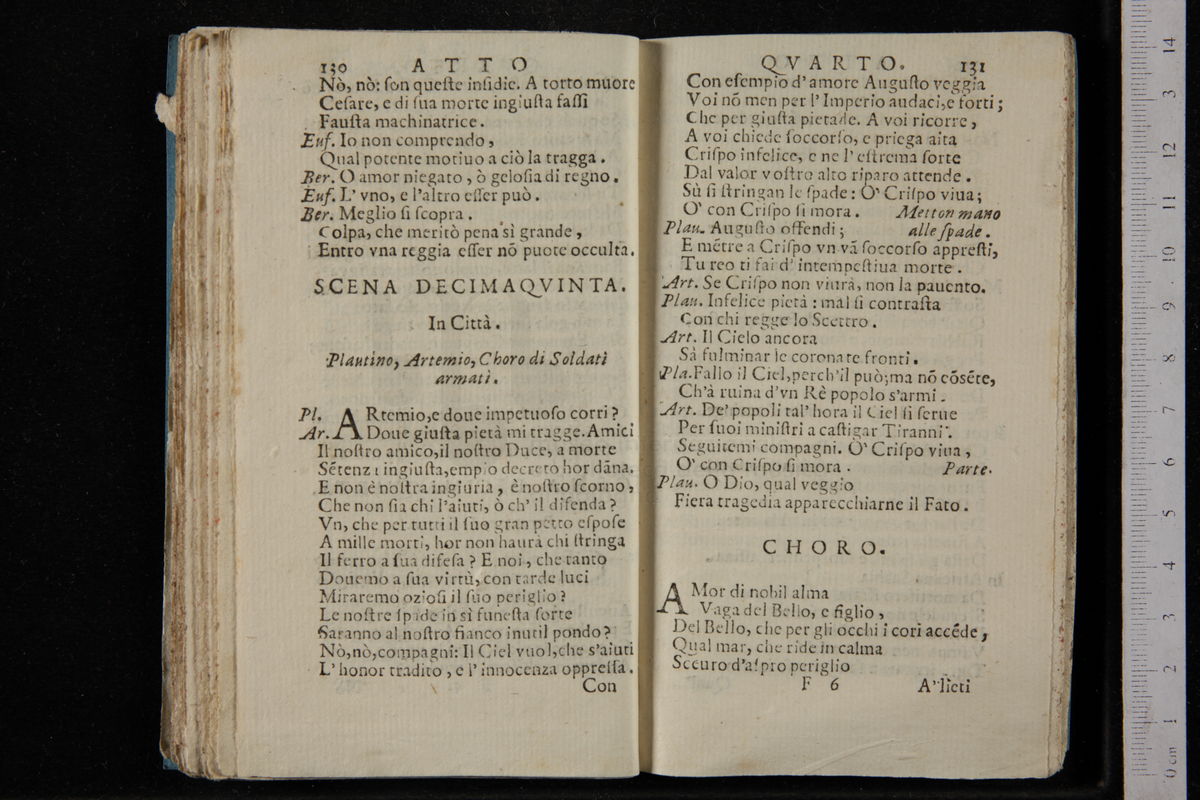 130 ATTO
Nò, nò: ſon queſte inſidie. A torto muore
Ceſare, e di ſua morte ingiuſta faſſi
Fauſta machinatrice.
Euf. Io non comprendo,
Qual potente motiuo a ciò la tragga.
Ber. O amor niegato, ò geloſia di regno.
Euf. L' vno, e l'altro eſſer può.
Ber. Meglio ſi ſcopra.
Colpa, che meritò pena sì grande,
Entro vna reggia eſſer nō puote occulta.
SCENA DECIMAQVINTA.
In Città.
Plautino, Artemio, Choro di Soldati
armati.
Pl. ARtemio,e doue impetuoſo corri?
Ar. Doue giuſta pietà mi tragge. Amici
Il noſtro amico,il noſtro Duce, a morte
Sētenza ingiuſta,empio decreto hor dāna.
E non è noſtra ingiuria, è noſtro ſcorno,
Che non ſia chi l'aiuti, ò ch' il difenda?
Vn, che per tutti il ſuo gran petto eſpoſe
A mille morti, hor non haurà chi ſtringa
Il ferro a ſua difeſa? E noi, che tanto
Douemo a ſua virtù, con tarde luci
Miraremo ozioſi il ſuo periglio?
Le noſtre ſpade in sì funeſta ſorte
Saranno al noſtro fianco inutil pondo?
Nò,nò,compagni: Il Ciel vuol,che s'aiuti
L' honor tradito, e l' innocenza oppreſſa.
Con
QVARTO. 131
Con eſempio d' amore Auguſto veggia
Voi nō men per l' Imperio audaci,e forti;
Che per giuſta pietade. A voi ricorre,
A voi chiede ſoccorſo, e priega aita
Criſpo infelice, e ne l' eſtrema ſorte
Dal valor voſtro alto riparo attende.
Sù ſi ſtringan le ſpade: O' Criſpo viua;
O' con Criſpo ſi mora. Metton mano
Plau. Auguſto offendi; alle ſpade.
E mētre a Criſpo vn vā ſoccorſo appreſti,
Tu reo ti fai d' intempeſtiua morte.
Art. Se Criſpo non viurà, non la pauento.
Plau. Infelice pietà: mal ſi contraſta
Con chi regge lo Scettro.
Art. Il Cielo ancora
Sà fulminar le coronate fronti.
Pla. Fallo il Ciel,perch'il può;ma nō cōsēte,
Ch'à ruina d'vn Rè popolo s'armi.
Art. De' popoli tal' hora il Ciel ſi ſerue
Per ſuoi miniſtri a caſtigar Tiranni.
Seguitemi compagni. O' Criſpo viua,
O' con Criſpo ſi mora. Parte.
Plau. O Dio, qual veggio
Fiera tragedia apparecchiarne il Fato.
CHORO.
AMor di nobil alma
Vaga del Bello, e figlio,
Del Bello, che per gli occhi i cori accēde,
Qual mar, che ride in calma
Sceuro d'aſpro periglio
F 6 A' lieti